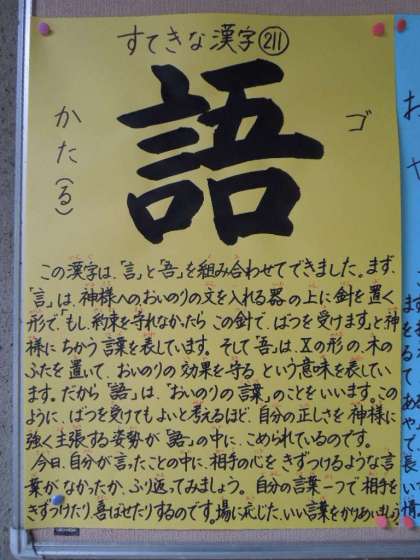 すてきな漢字211
語
ゴ
かた(る)
この漢字は、「言」と「吾」を組み合わせてできました。まず、
「言」は、神様へのおいのりの文を入れる器の上に針を置く
形で「もし、約束を守れなかったら この針で、ばつを受けます。」と神
様に ちかう 言葉を表しています。そして「吾」は、Xの形の、木の
ふたを 置いて、おいのりの 効果を守る という意味を表してい
ます。だから「語」は、「おいのりの言葉」のことをいいます。この
ように、ばつを受けてもよいと考えるほど、自分の正しさを神様に
強く主張する姿勢が「語」の中に、こめられているのです。
今日、自分が言ったことの中に、相手の心を きずつけるような言
葉がなかったか、ふり返ってみましょう。自分の言葉一つで相手を
きずつけたり、喜ばせたりするのです。場に応じた、いい言葉をかけあいましょう